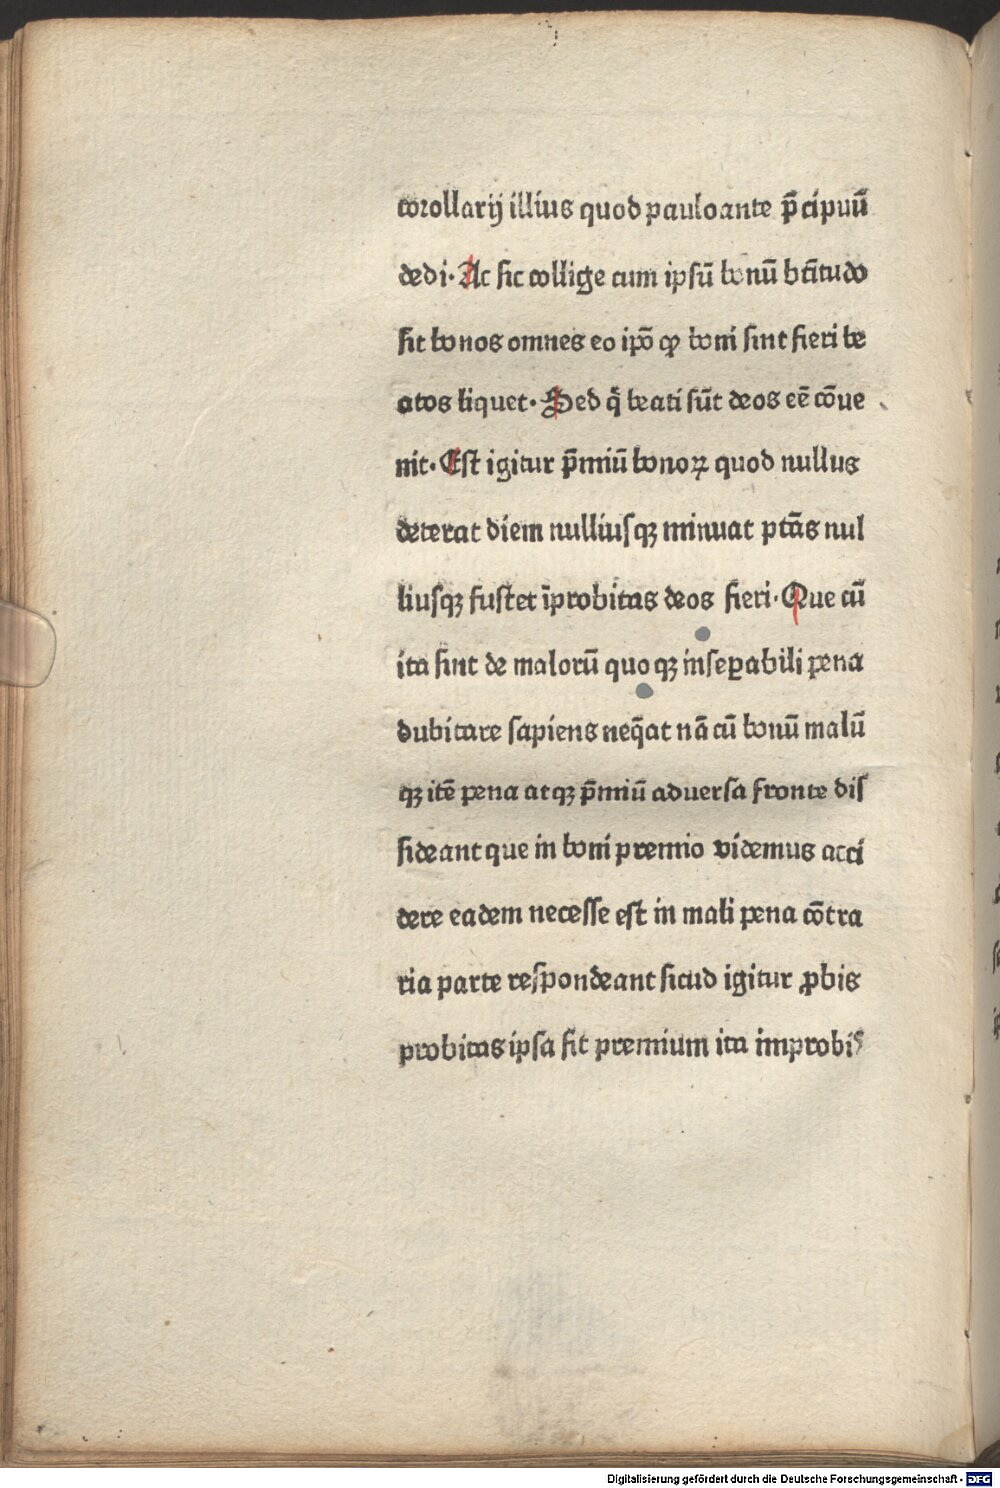 corollarij illius quod pauloante p̄cipuū
dedi· Ac sic collige cum ipsū bonū bt̄itudo
sit bonos omnes eo ipō ꝙ boni sint fieri be
atos liquet· Sed q̄ beati sūt deos eē cōue
nit· Est igitur p̄miū bonoꝝ quod nullus
deterat diem nulliusqꝫ minuat ptās nul
liusqꝫ fustet īprobitas deos fieri· Que cū
ita sint de malorū quoqꝫ inseꝑabili pena
dubitare sapiens neq̄at nā cū bonū malū
qꝫ itē pena atqꝫ p̄miū aduersa fronte dis
sideant que in boni premio videmus acci
dere eadem necesse est in mali pena cōtra
ria parte respondeant sicud igitur ꝓbis
probitas ipsa fit premium ita improbis
Digitalisierung gefördert durch die Deutsche Forschungsgemeinschaft - DFG